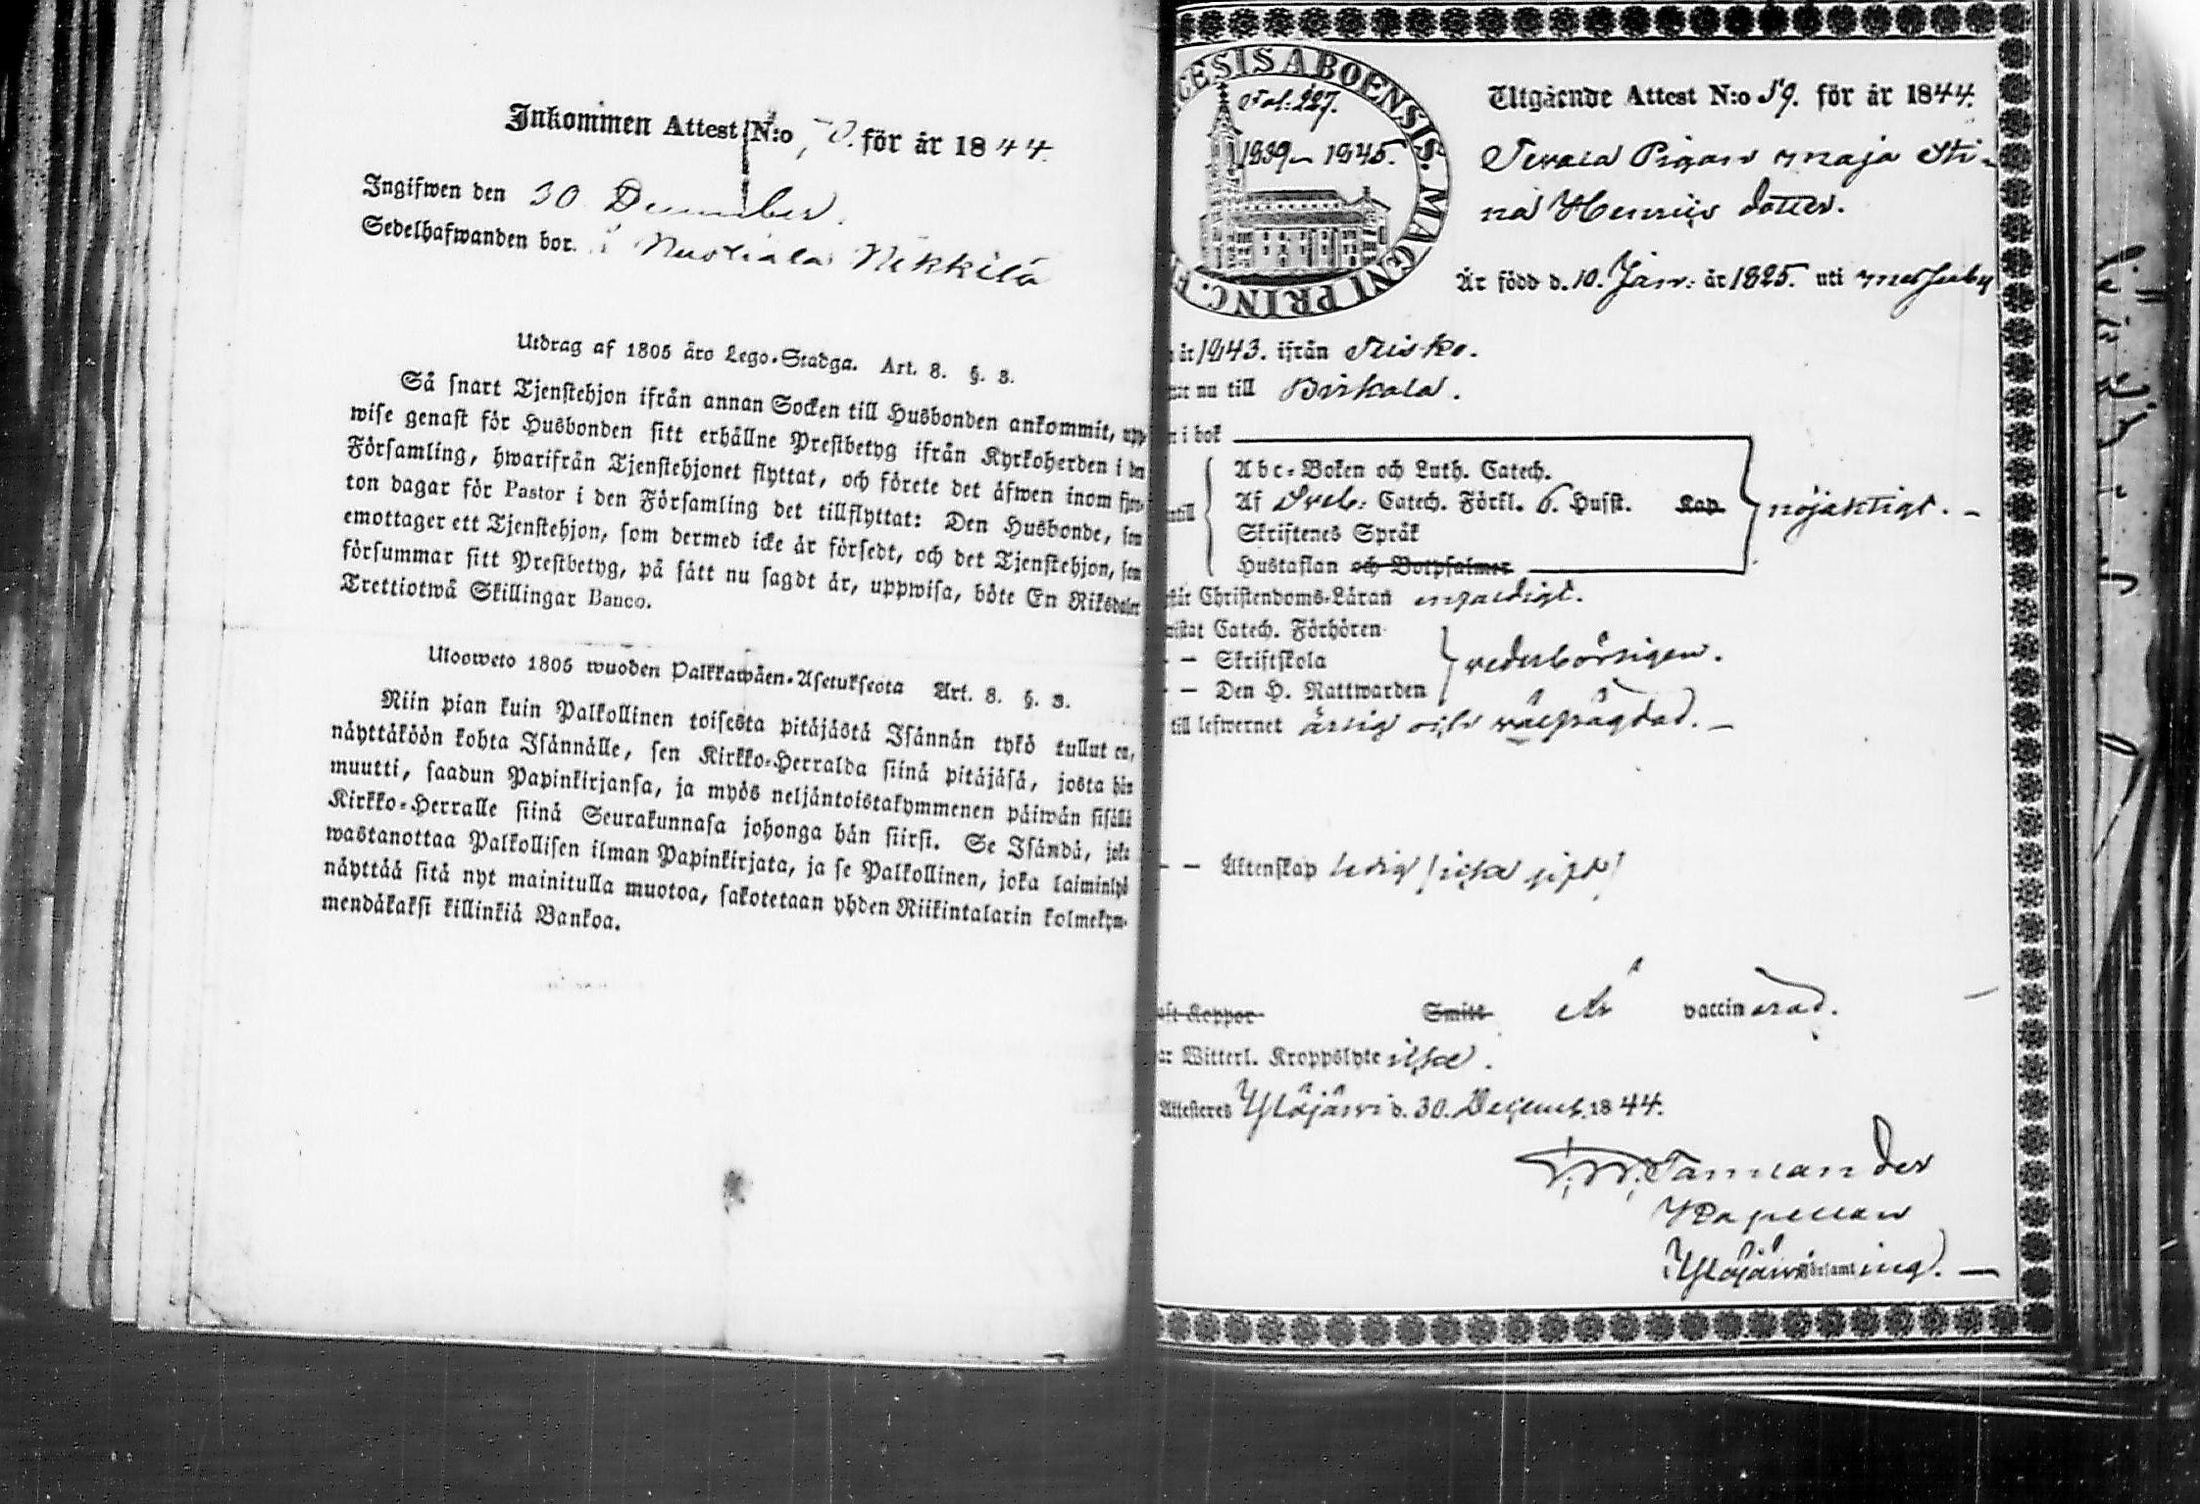 Inkommen Attest N:o för år 1844.
Ingifwen den 30 December.
Sedelhafwanden bor. i Nuoliala Nikkilä
Utdrag af 1805 åro Lego-Stadga. Art. 8. §. 3.
Så snart Tjenstehjon ifrån annan Socken till Husbonden ankommit, upp-
wise genast för Husbonden sitt erhållne Prestbetyg ifrån Kyrkoherden i den
Församling, hwarifrån Tjenstehjonet flyttat, och förete det äfwen inom fjor-
ton dagar för Pastor i den Församling det tillflyttat: Den Husbonde, som
emottager ett Tjenstehjon, som dermed icke är försedt, och det Tjenstehjon, som
försummar sitt Prestbetyg, på sätt nu sagdt är, uppwisa, böte En Riksdaler
Trettiotwå Skillingar Banco.
Ulosweto 1805 wuoden Palkkawäen-Asetuksesta Art. 8. §. 3.
Niin pian kuin Palkollinen toisesta pitäjästä Isännän tykö tullut on,
näyttäköön kohta Isännälle, sen Kirkko-Herralda siinä pitäjäsä, josta hän
muutti, saadun Papinkirjansa, ja myös neljäntoistakymmenen päiwän sisällä
Kirkko-Herralle siinä Seurakunnasa johonga hän siirsi. Se Isändä, joka
wastanottaa Palkollisen ilman Papinkirjata, ja se Palkollinen, joka laiminlyö
näyttää sitä nyt mainitulla muotoa, sakotetaan yhden Riikintalarin kolmekym-
mendäkaksi killinkiä Bankoa.
CESIS ABOENSIS. MAGNI PRINC. F
Fol: 227.
1839–1845.
Utgående Attest N:o 59. för år 1844.
Pigan Maja Sti-
na Henrics dotter.
Är född d. 10. Jan: år 1825. uti Messuby
år 1843. ifrån
nu till Birkala.
i bok
Abc-Boken och Luth. Catech.
Af Sveb: Catech. Förkl. 6. Hufst. Kap
Skriftenes Språk
Hustaflan och Botpsalmer
nöjaktigt. –
Christendoms-Läran
Catech. Förhören
– – Skriftskola
– – Den H. Nattwarden
vederbörligen.
till lefwernet ärlig och välfrägdad. –
– – Äktenskap ledig /icke gift/
Koppor Smitt Är vaccinerad.
Witterl. Kroppslyte icke.
Attesteres Ylöjärwi d. 30. Decemb. 1844.
Tamlander
Kapellan
Ylöjärwi Församling. –